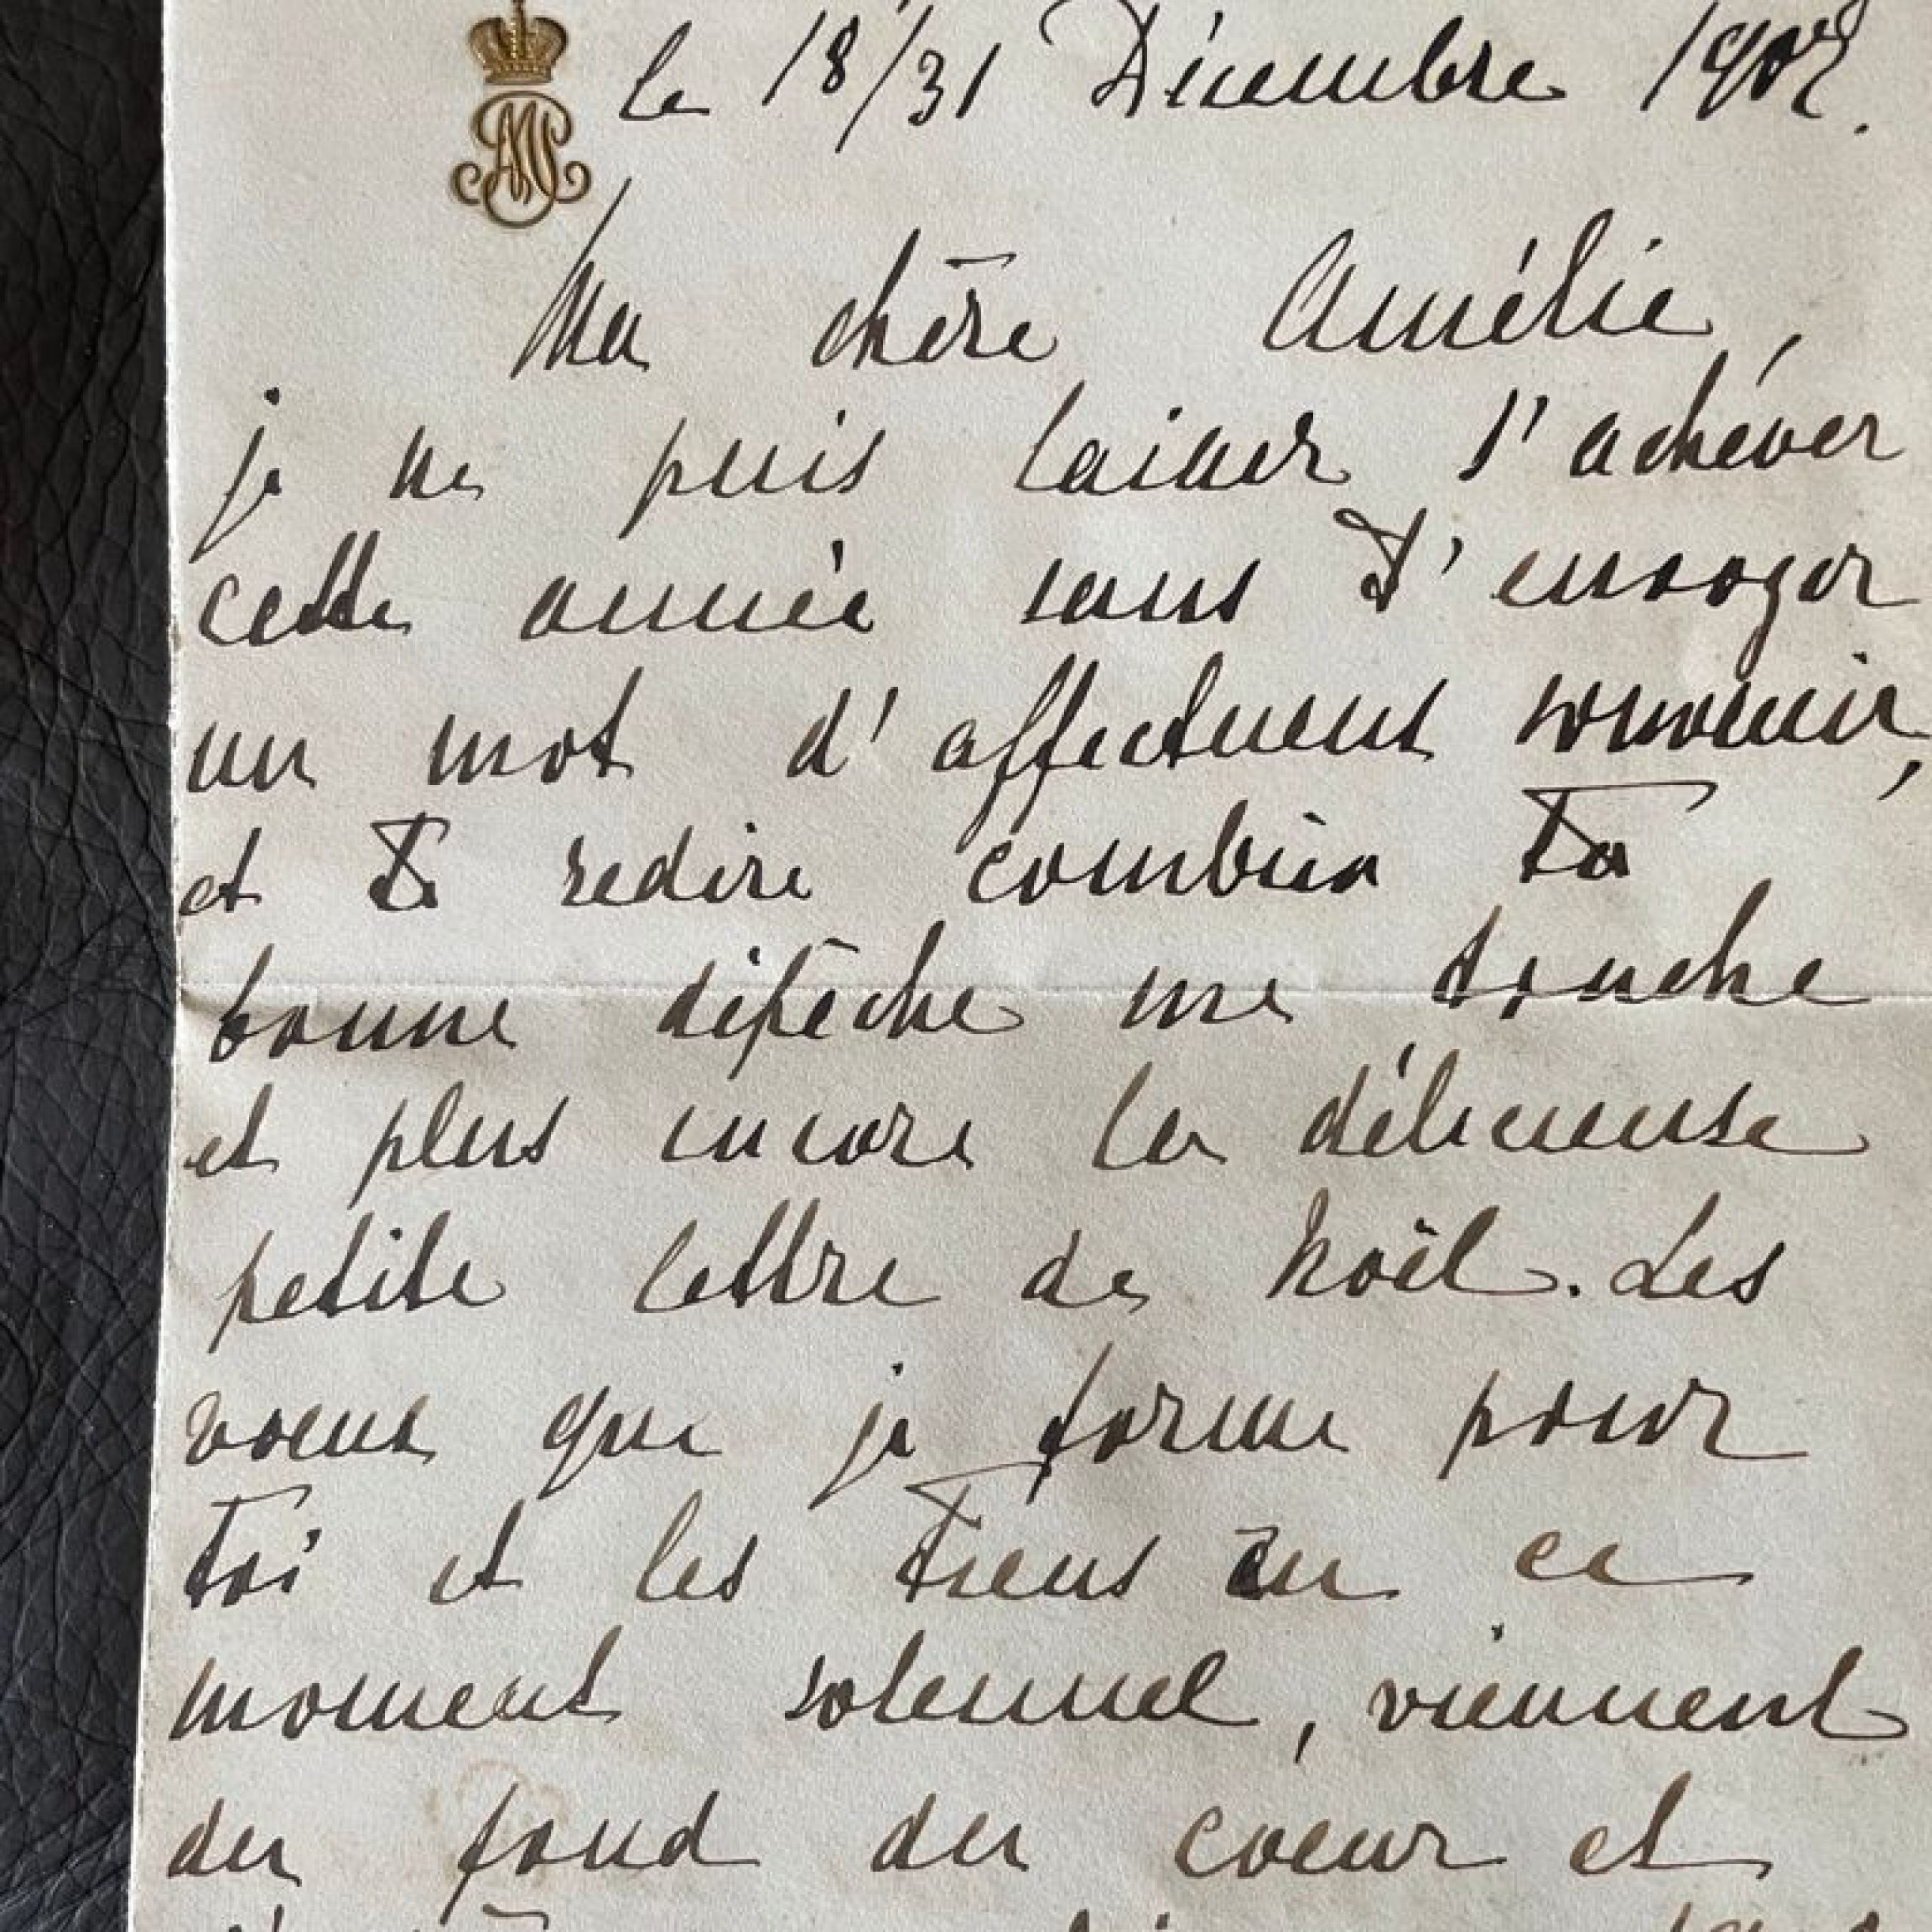 le 18/31 Décembre
Ma chère Amélie,
je ne puis laisser s'achever
cette année sans T'envoyer
un mot d'affectueux souvenir,
et Te redire combien Ta
bonne dépêche me touche
et plus encore la délicieuse
petite lettre de Noël. Les
voeux que je forme pour
Toi et les Tiens en ce
moment solennel, viennent
du fond du coeur et